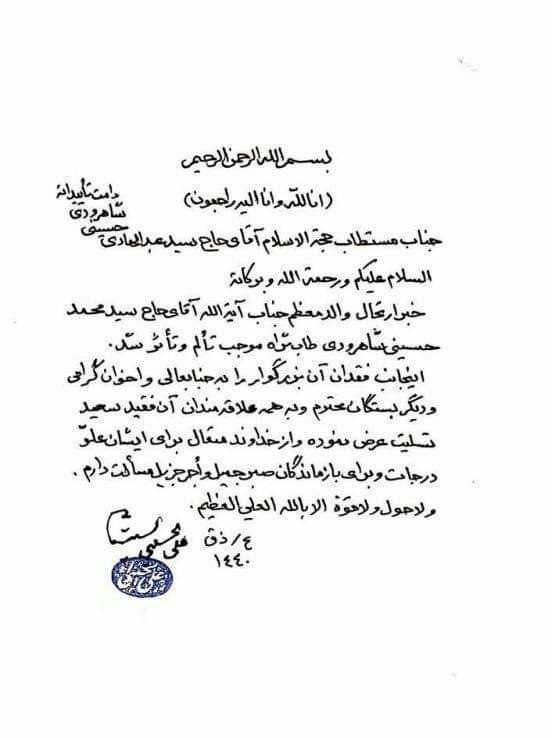 بسم الله الرحمن الرحیم
(انا لله وانا الیه راجعون)
جناب مستطاب حجة الاسلام آقای حاج سید عبدالهادی حسینی شاهرودی دامت تأییداته
السلام علیکم ورحمة الله وبرکاته
خبر ارتحال والد معظم جناب آیة الله آقای حاج سید محمد
حسینی شاهرودی طاب ثراه موجب تألم وتأثر شد.
اینجانب فقدان آن بزرگوار را به جنابعالی و اخوان گرامی
و دیگر بستگان محترم وبه همه علاقه مندان آن فقید سعید
تسلیت عرض نموده و از خداوند متعال برای ایشان علوّ
درجات وبرای بازماندگان صبر جمیل وأجر جزیل مسألت دارم.
ولا حول ولا قوة الا بالله العلی العظیم.
٤/ذق
١٤٤٠
علی الحسینی السیستانی